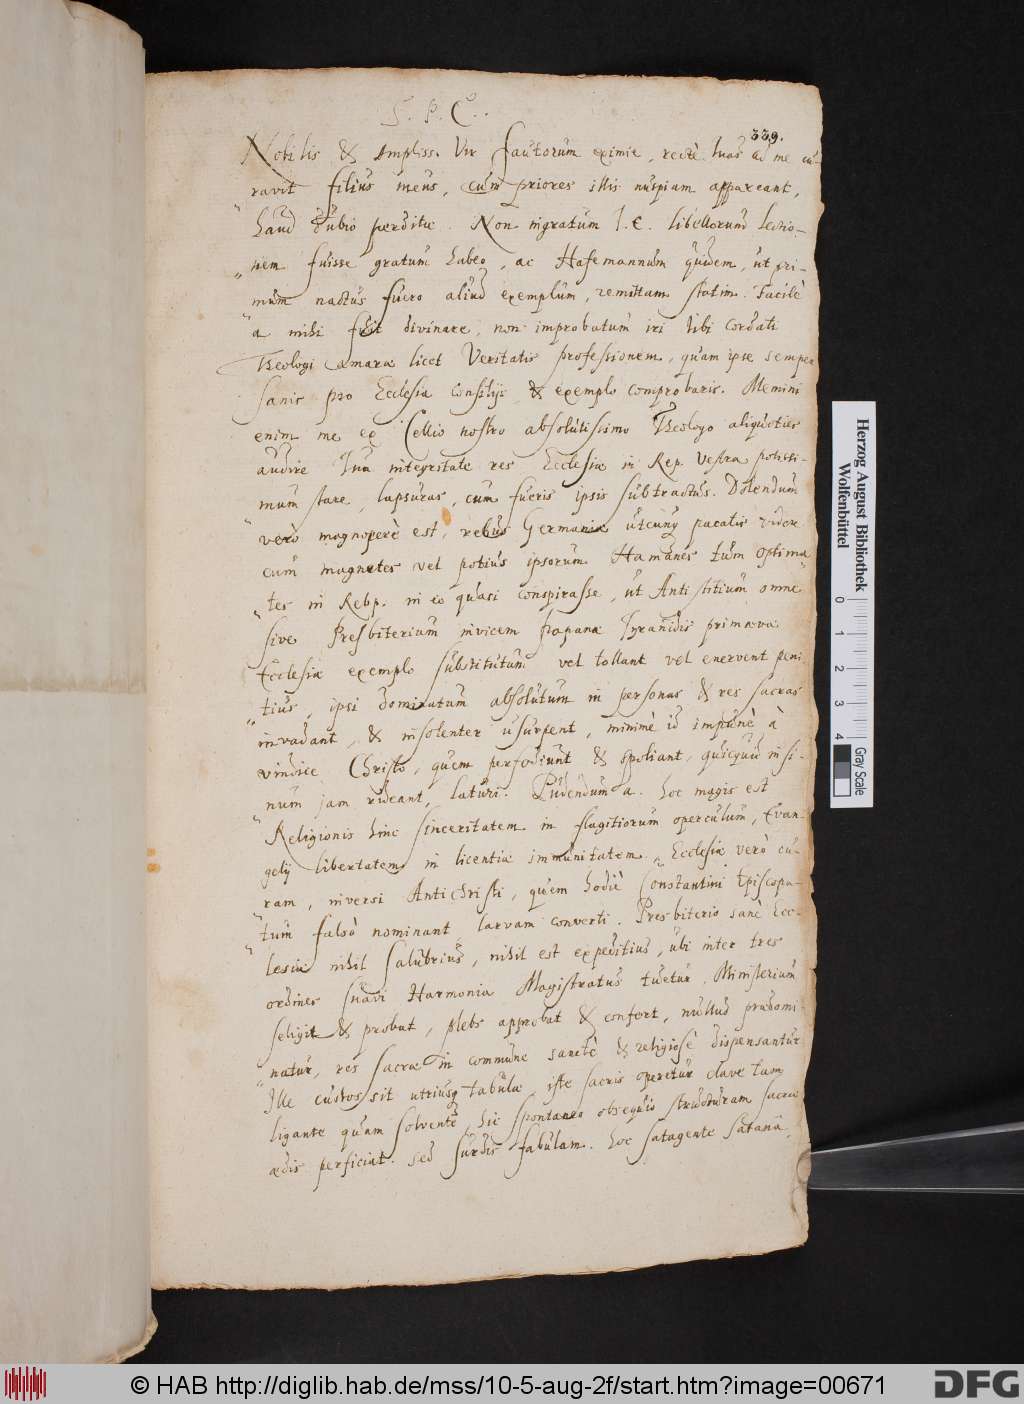 S. P. C.
339.
Nobilis & Ampliss. Vir fautorum eximie, rectè tuas ad me cu-
ravit filius meus, cum priores illis nuspiam appareant,
haud dubio perditæ. Non ingratum I. E. libellorum lectio-
nem fuisse gratum habeo, ac Hafemannum quidem, ut pri-
mum nactus fuero aliud exemplum, remittam statim. Facilè
a mihi fuit divinare, non improbatum iri tibi cordati
Theologi amaræ licet Veritatis professionem, quam ipse semper
sanis pro Ecclesia consilijs & exemplo comprobaris. Memini
enim me ex Cellio nostro absolutissimo Theologo aliquoties
audire Tua integritate res Ecclesiæ in Rep. Vestra potissi-
mum stare, lapsuras, cum fueris ipsis subtractus. Dolendum
verò magnoperè est, rebus Germaniæ utcunq pacatis videre
cum magnates vel potius ipsorum Hamanes tum optima-
tes in Rebp. in eo quasi conspirasse, ut Antistitium omne
sive Presbiterium invicem papanæ Tyrannidis primævæ
Ecclesiæ exemplo substitutum vel tollant vel enervent peni-
tius, ipsi dominatum absolutum in personas & res sacras
invadant, & insolenter usurpent, minimè id impunè à
vindice Christo, quem perfodiunt & spoliant, quicquid in si-
num jam rideant, laturi. Pudendum a. hoc magis est
Religionis hinc sinceritatem in flagitiorum operculum, Evan-
gelij libertatem in licentiæ immunitatem, Ecclesiæ verò cu-
ram, inversi Antichristi, quem hodiè Constantini Episcopa-
tum falsò nominant larvam converti. Presbiterio sanè Ecc-
lesiæ nihil salubrius, nihil est expeditius, ubi inter tres
ordines suavi Harmonia Magistratus tuetur, Ministerium
seligit & probat, plebs approbat & confert, nullus prædomi-
natur, res sacræ in commune sanctè & religiosè dispensantur
Ille custos sit utriusq tabulæ, iste sacris operetur clave tam
ligante quam solvente, hic spontaneo obsequio structuram sacræ
ædis perficiat. Sed surdis fabulam. hoc satagente Satana,
Herzog August Bibliothek
Wolfenbüttel
0 1 2 3 4
Gray Scale
© HAB http://diglib.hab.de/mss/10-5-aug-2f/start.htm?image=00671
DFG